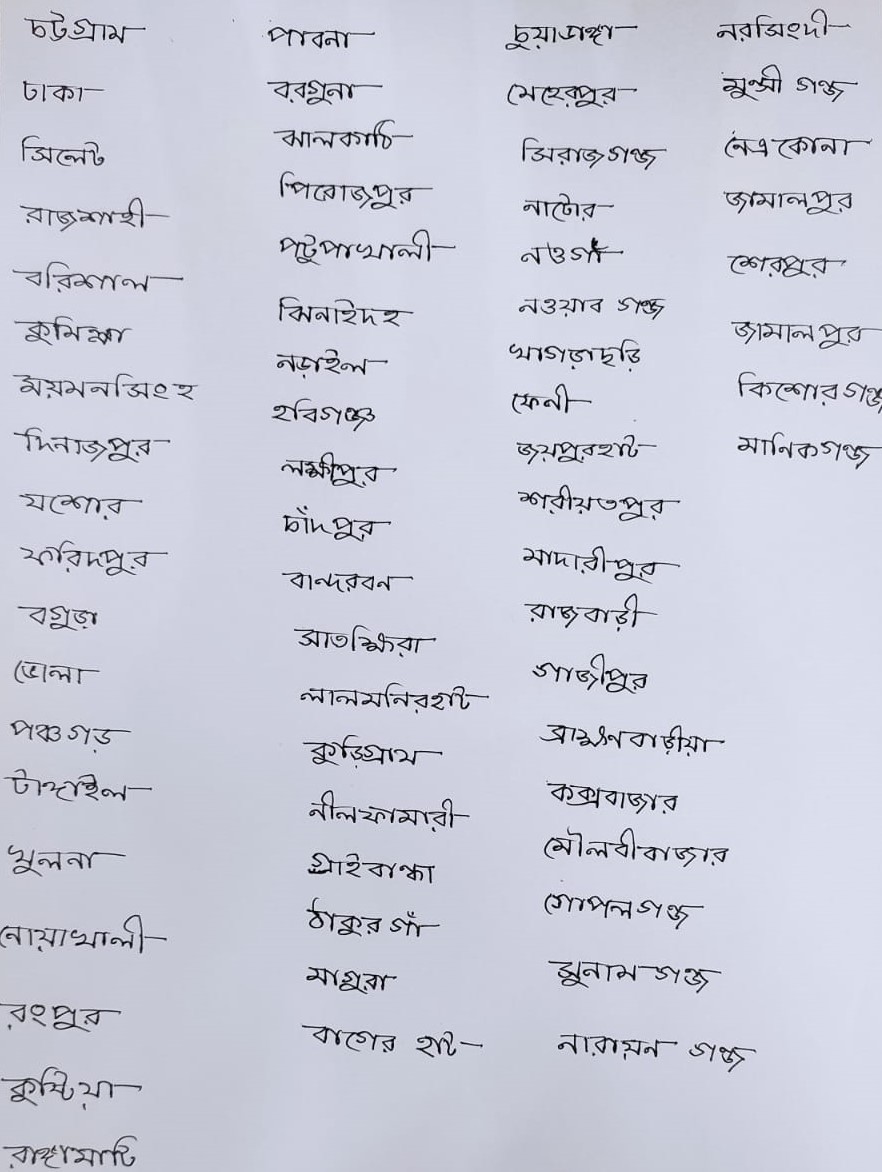 চট্টগ্রাম
ঢাকা
সিলেট
রাজশাহী
বরিশাল
কুমিল্লা
ময়মনসিংহ
দিনাজপুর
যশোর
ফরিদপুর
বগুড়া
ভোলা
পঞ্চগড়
টাঙ্গাইল
খুলনা
নোয়াখালী
রংপুর
কুষ্টিয়া
রাঙ্গামাটি
পাবনা
বরগুনা
ঝালকাঠি
পিরোজপুর
পটুপাখালী
ঝিনাইদহ
নড়াইল
হবিগঞ্জ
লক্ষীপুর
চাঁদপুর
বান্দরবন
সাতক্ষিরা
লালমনিরহাট
কুড়িগ্রাম
নীলফামারী
গাইবান্ধা
ঠাকুর গাঁ
মাগুরা
বাগের হাট
চুয়াডাঙ্গা
মেহেরপুর
সিরাজগঞ্জ
নাটোর
নওগাঁ
নওয়াব গঞ্জ
খাগড়াছড়ি
ফেনী
জয়পুরহাট
শরীয়তপুর
মাদারীপুর
রাজবাড়ী
গাজীপুর
ব্রাহ্মণবাড়ীয়া
কক্সবাজার
মৌলবীবাজার
গোপলগঞ্জ
সুনামগঞ্জ
নারায়ন গঞ্জ
নরসিংদী
মুন্সী গঞ্জ
নেত্রকোনা
জামালপুর
শেরপুর
জামালপুর
কিশোরগঞ্জ
মানিকগঞ্জ